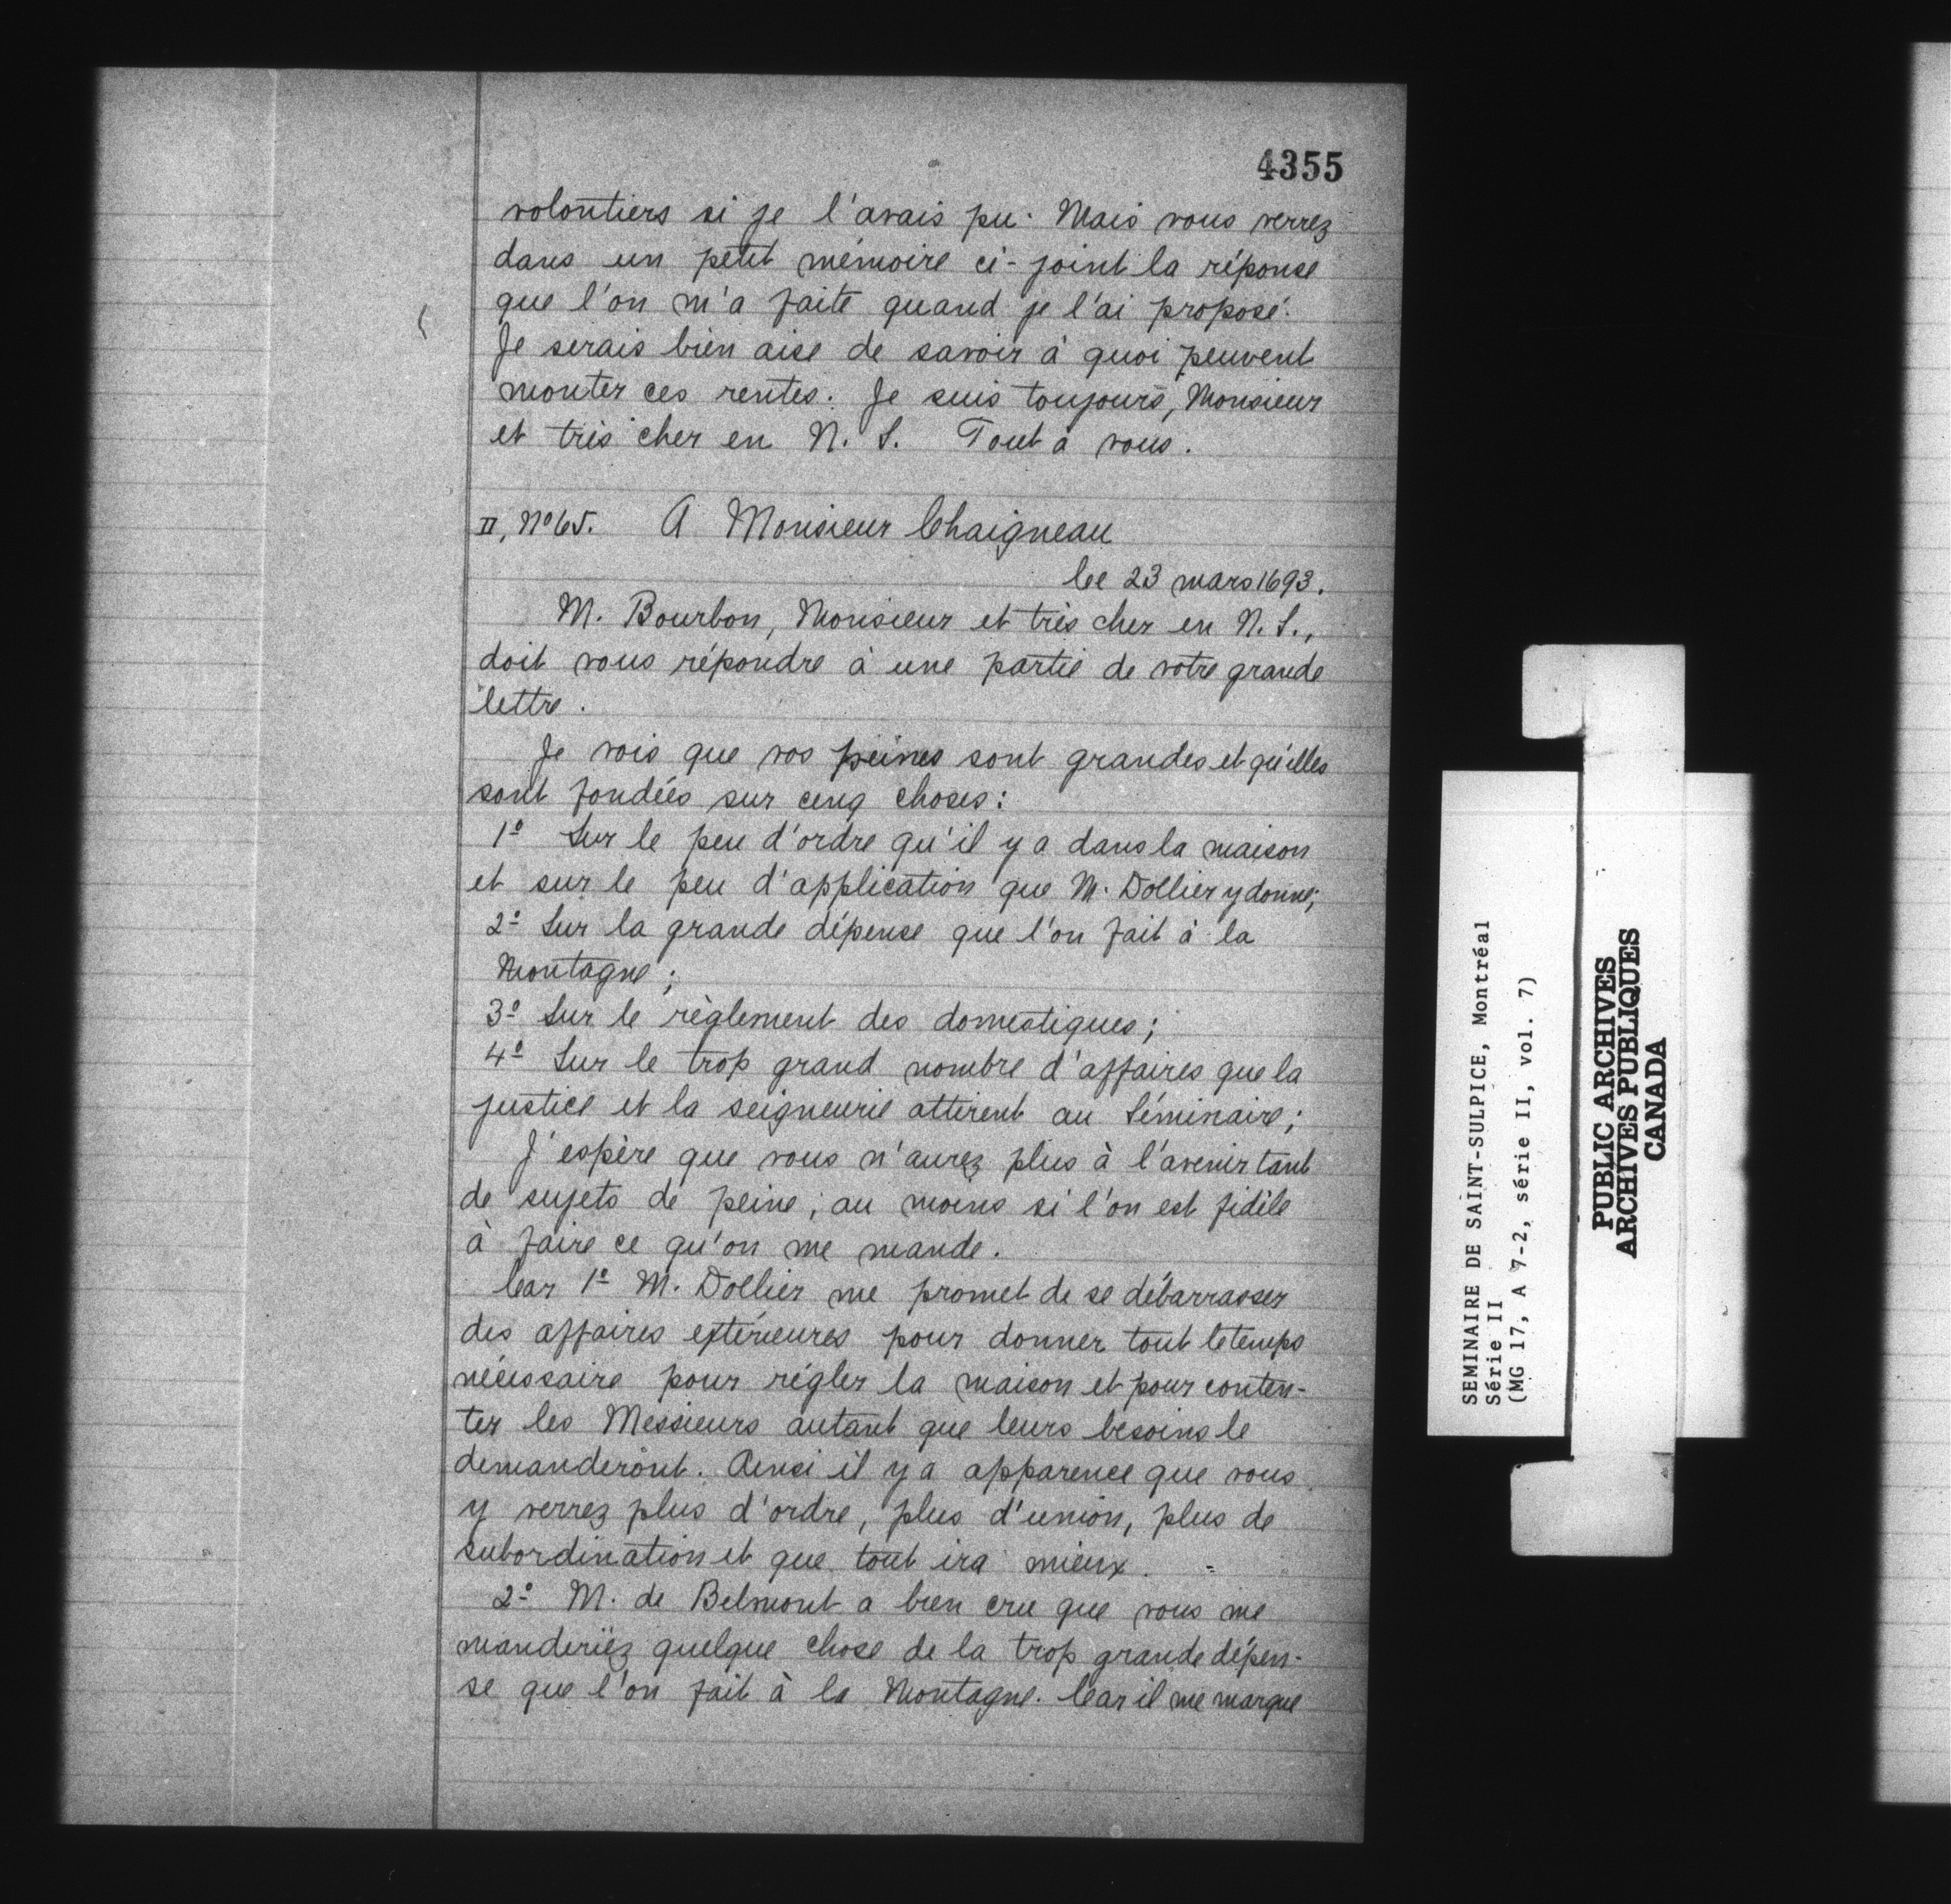 4355
volontiers si je l'avais pu. Mais vous verrez
dans un petit mémoire ci-joint la réponse
que l'on m'a faite quand je l'ai proposé.
Je serais bien aise de savoir à quoi peuvent
monter ces rentes. Je suis toujours, Monsieur
et très cher en N. S. Tout à vous.
II, No 65. A Monsieur Chaigneau
Ce 23 mars 1693.
M. Bourbon, Monsieur et très cher en N. S.,
doit vous répondre à une partie de votre grande
lettre.
Je vois que vos peines sont grandes et qu'elles
sont fondées sur cinq choses:
1º Sur le peu d'ordre qu'il y a dans la maison
et sur le peu d'application que M. Dollier y donne;
2º Sur la grande dépense que l'on fait à la
Montagne;
3º Sur le règlement des domestiques;
4º Sur le trop grand nombre d'affaires que la
justice et la seigneurie attirent au Séminaire;
J'espère que vous n'aurez plus à l'avenir tant
de sujets de peine, au moins si l'on est fidèle
à faire ce qu'on me mande.
Car 1º M. Dollier me promet de se débarrasser
des affaires extérieures pour donner tout le temps
nécessaire pour régler la maison et pour conten-
ter les Messieurs autant que leurs besoins le
demanderont. Ainsi il y a apparence que vous
y verrez plus d'ordre, plus d'union, plus de
subordination et que tout ira mieux.
2º M. de Belmont a bien cru que vous me
manderiez quelque chose de la trop grande dépen-
se que l'on fait à la Montagne. Car il me marque
SEMINAIRE DE SAINT-SULPICE, Montréal
Série II
(MG 17, A 7-2, série II, vol. 7)
PUBLIC ARCHIVES
ARCHIVES PUBLIQUES
CANADA